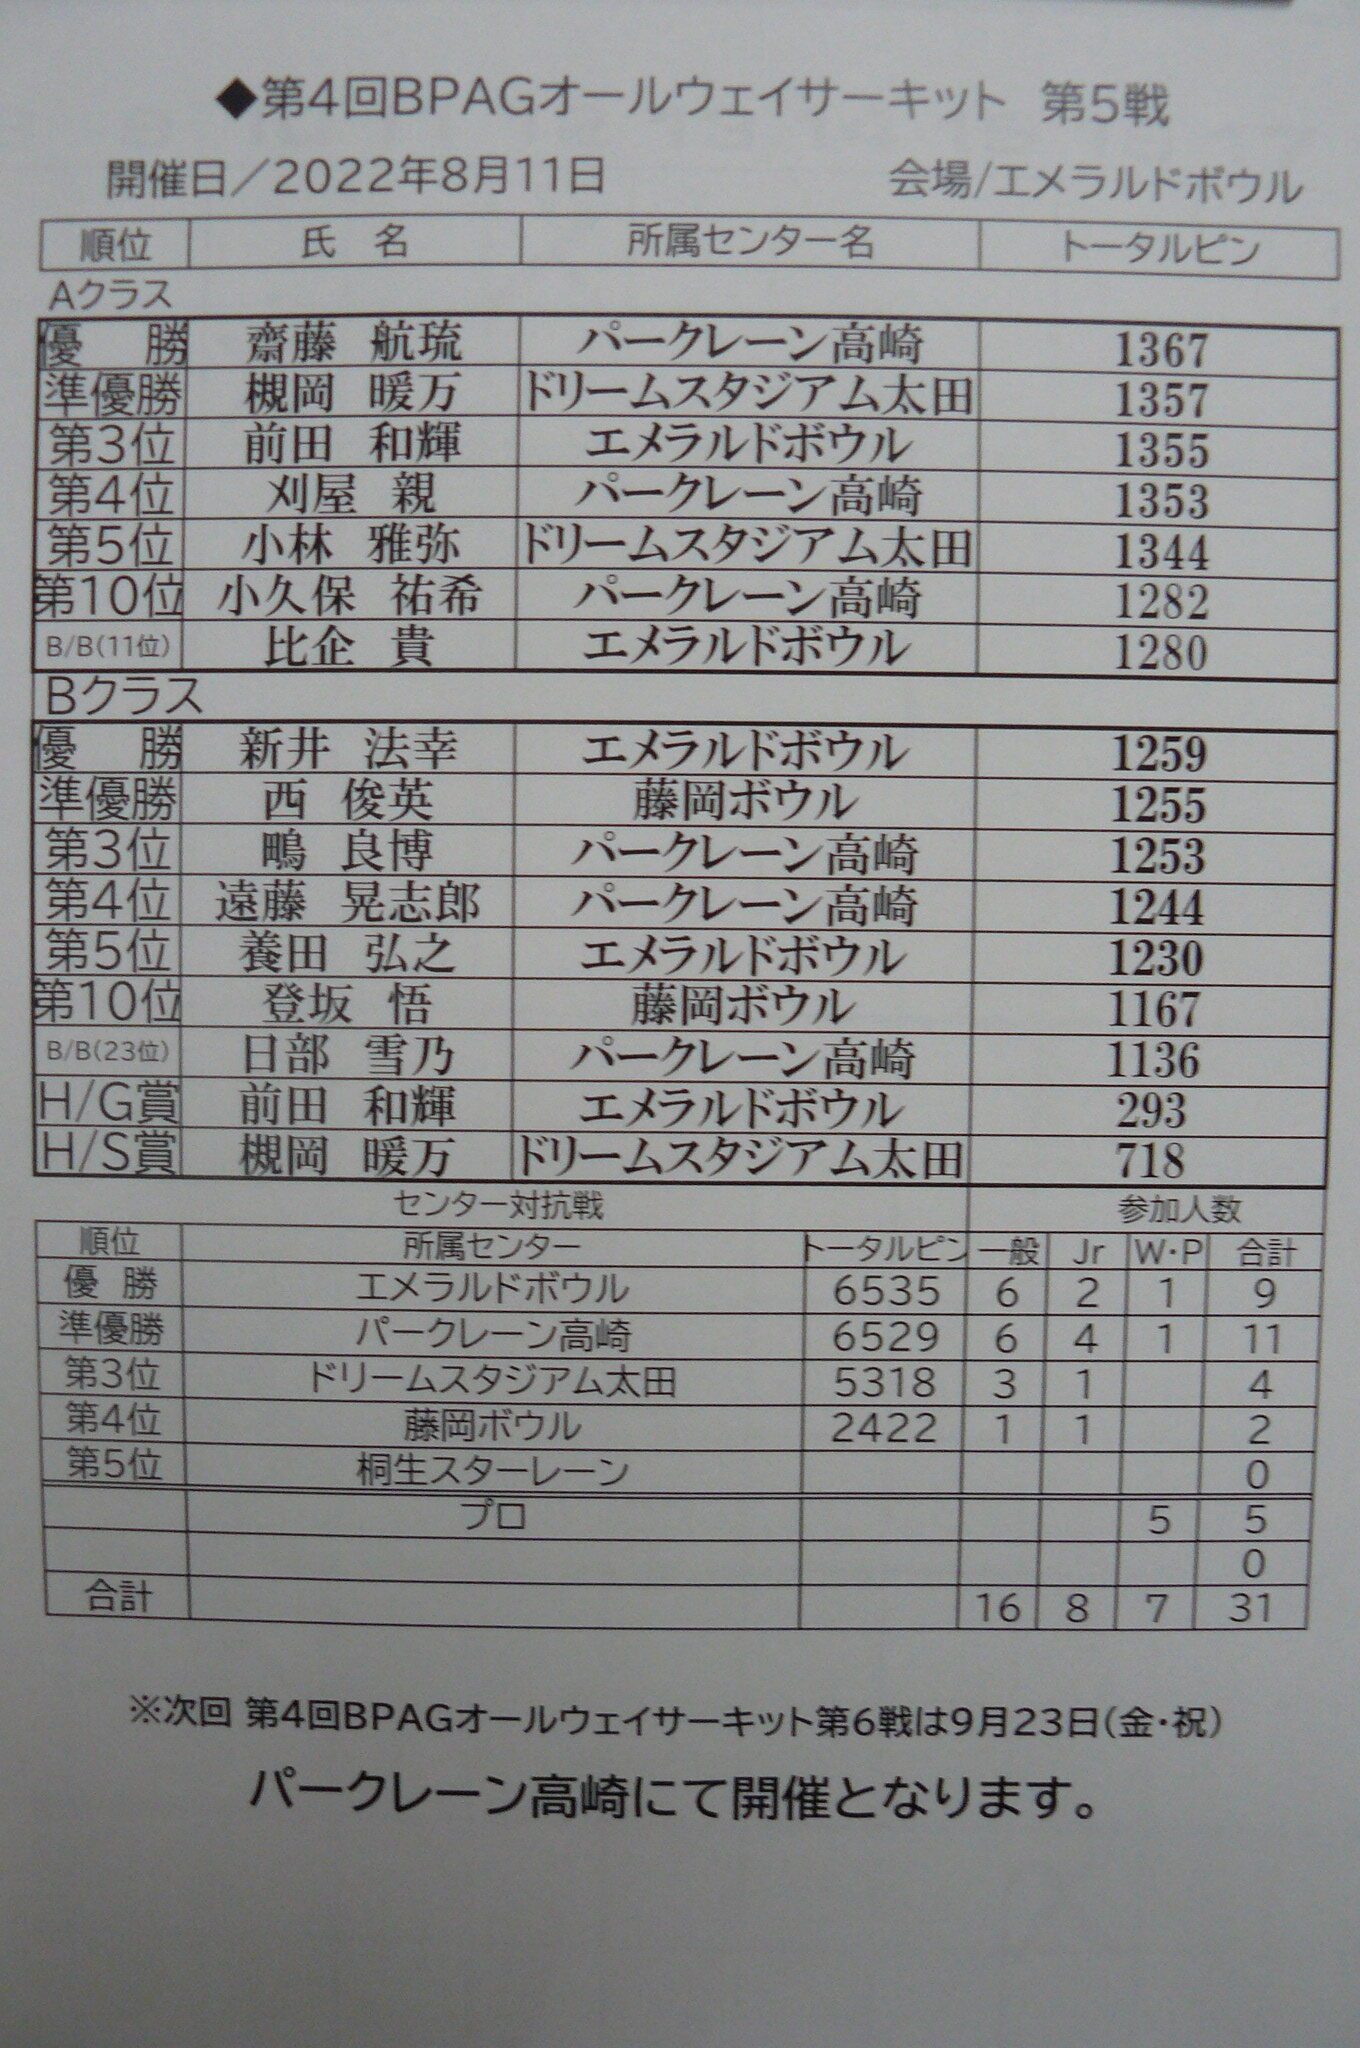 ◆第4回BPAGオールウェイサーキット 第5戦
開催日／2022年8月11日 会場/エメラルドボウル
順位 氏 名 所属センター名 トータルピン
Aクラス
優 勝 齋藤 航琉 パークレーン高崎 1367
準優勝 槻岡 暖万 ドリームスタジアム太田 1357
第3位 前田 和輝 エメラルドボウル 1355
第4位 刈屋 親 パークレーン高崎 1353
第5位 小林 雅弥 ドリームスタジアム太田 1344
第10位 小久保 祐希 パークレーン高崎 1282
B/B(11位) 比企 貴 エメラルドボウル 1280
Bクラス
優 勝 新井 法幸 エメラルドボウル 1259
準優勝 西 俊英 藤岡ボウル 1255
第3位 鴫 良博 パークレーン高崎 1253
第4位 遠藤 晃志郎 パークレーン高崎 1244
第5位 養田 弘之 エメラルドボウル 1230
第10位 登坂 悟 藤岡ボウル 1167
B/B(23位) 日部 雪乃 パークレーン高崎 1136
H/G賞 前田 和輝 エメラルドボウル 293
H/S賞 槻岡 暖万 ドリームスタジアム太田 718
センター対抗戦 参加人数
順位 所属センター トータルピン 一般 Jr W・P 合計
優 勝 エメラルドボウル 6535 6 2 1 9
準優勝 パークレーン高崎 6529 6 4 1 11
第3位 ドリームスタジアム太田 5318 3 1 4
第4位 藤岡ボウル 2422 1 1 2
第5位 桐生スターレーン 0
プロ 5 5
0
合計 16 8 7 31
※次回 第4回BPAGオールウェイサーキット第6戦は9月23日(金・祝)
パークレーン高崎にて開催となります。